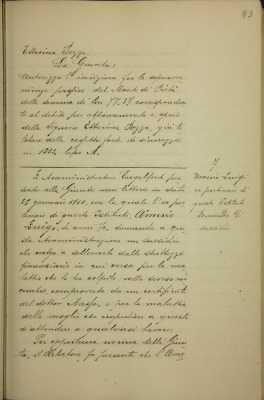 93
Etterina Pozzo.
La Giunta:
Autorizza l'iscrizione fra le sopravve-
nienze passive del Monte di Pietà
della somma di Lire 77.17 corrisponden-
te al debito per
della Signora Etterina Pozzo, già ti-
tolare della
n 1222, lepo A.
L'Amministratore pre-
senta alla Giunta una lettera in data
25 gennaio con la quale l'ex por-
tinaio di questo Istituto, Amerio
Luigi, di anni 70, domanda a que-
sta Amministrazione un sussidio
che valga a sollevarlo dalle strettezze
finanziarie in cui versa per la ma-
lattia che lo ha colpito nello scorso no-
vembre, comprovata da un certificato
del dottor Masso, e per la malattia
della moglie che impedisce a questa
di attendere a qualsiasi lavoro.
Per opportuna norma della Giun-
ta, il Relatore fa presente che l'Ame-
7.
Amerio Luigi
ex portinaio di
questo Istituto
Domanda di
sussidio